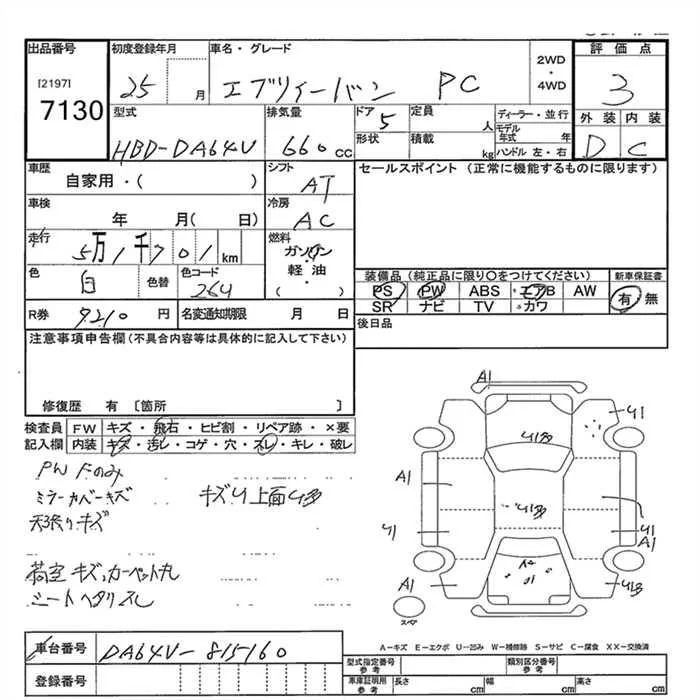 出品番号 初度登録年月 車名・グレード 2WD・4WD 評価点
[2197]
7130 25 月 エブリイーバン PC 3
型式 排気量 ドア 定員 ディーラー・並行 外装 内装
HBD-DA64V 660 cc 5 人 モデル年式 年
形状 積載 kg ハンドル 左・右 D C
車歴 シフト セールスポイント (正常に機能するものに限ります)
自家用・( ) AT
車検 冷房
年 月( 日) AC
走行 燃料
5万1千701km ガソリン・軽油・( )
色 色替 色コード 装備品 (純正品に限り○をつけてください) 新車保証書
白 26U PS PW ABS エアB AW 有・無
SR ナビ TV カワ
R券 9210円 名変通知期限 月 日 後日品
注意事項申告欄(不具合内容等は具体的に記入して下さい)
修復歴 有 [箇所 ]
検査員 FW キズ・飛石・ヒビ割・リペア跡・×要
記入欄 内装 キズ・汚レ・コゲ・穴・スレ・キレ・破レ
PW Fのみ
ミラーカバーキズ キズU上面U多
天張りキズ
荷室キズ、カーペット丸
シートヘタリスレ
A1
U1
U多
A1
U1多
U1
U1
A1
A1
U1多
スペア
A-キズ E-エクボ U-凹み W-補修跡 S-サビ C-腐食 XX-交換済
車台番号 DA64V-815160
登録番号
型式指定番号 参考 類別区分番号 参考
車庫証明用 参考 長さ cm 幅 cm 高さ cm